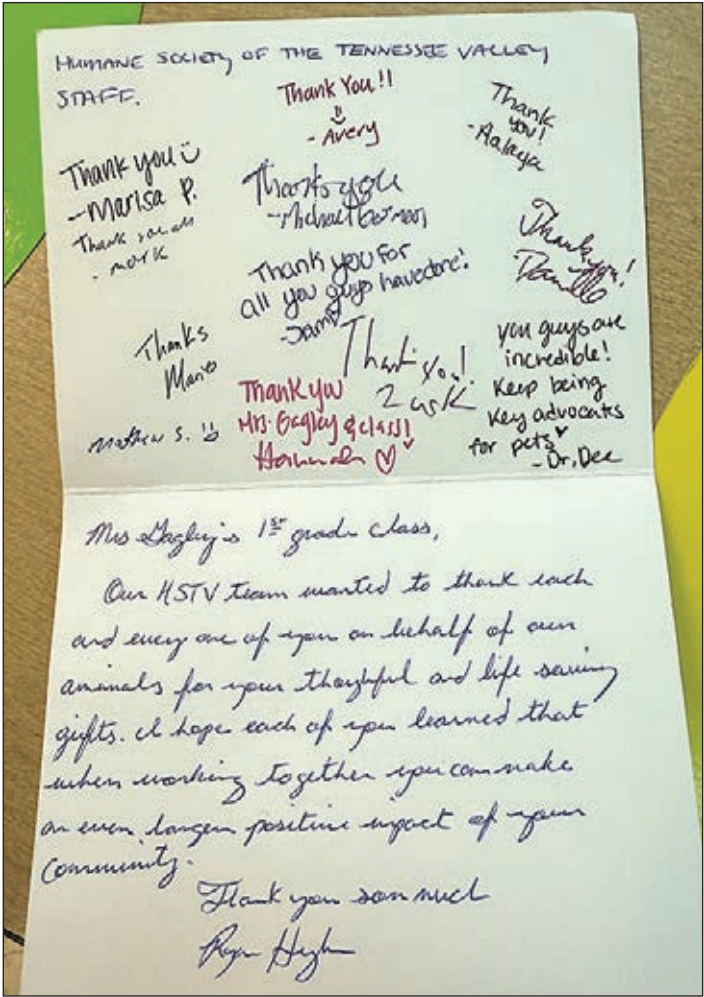 HUMANE SOCIETY OF THE TENNESSEE VALLEY
STAFF.
Thank You!!
- Avery
Thank
you!
- Aalaya
Thank you
- Marisa P.
Thank you all
- mark
Thank you
- Michael
Thank you!
Danielle
Thank you for
all you guys have done!
- Sam
Thanks
Mario
Thank you!
you guys are
incredible!
Keep being
key advocates
for pets
- Dr. Dee
Thank you
Mrs. Gagley & class!
Hannah
Mathew S.
Mrs Gagley's 1st grade class,
Our HSTV team wanted to thank each
and every one of you on behalf of our
animals for your thoughful and life saving
gifts. I hope each of you learned that
when working together you can make
an even larger positive impact of your
community.
Thank you soo much
Ryan